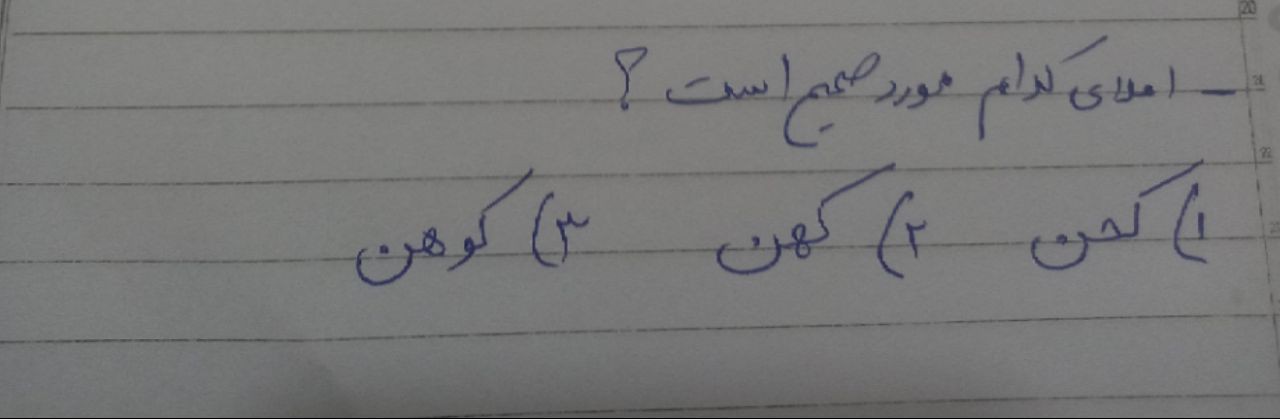 - املای کدام مورد صحیح است ؟
۱) کحن ۲) کهن ۳) کوهن
20
21
22